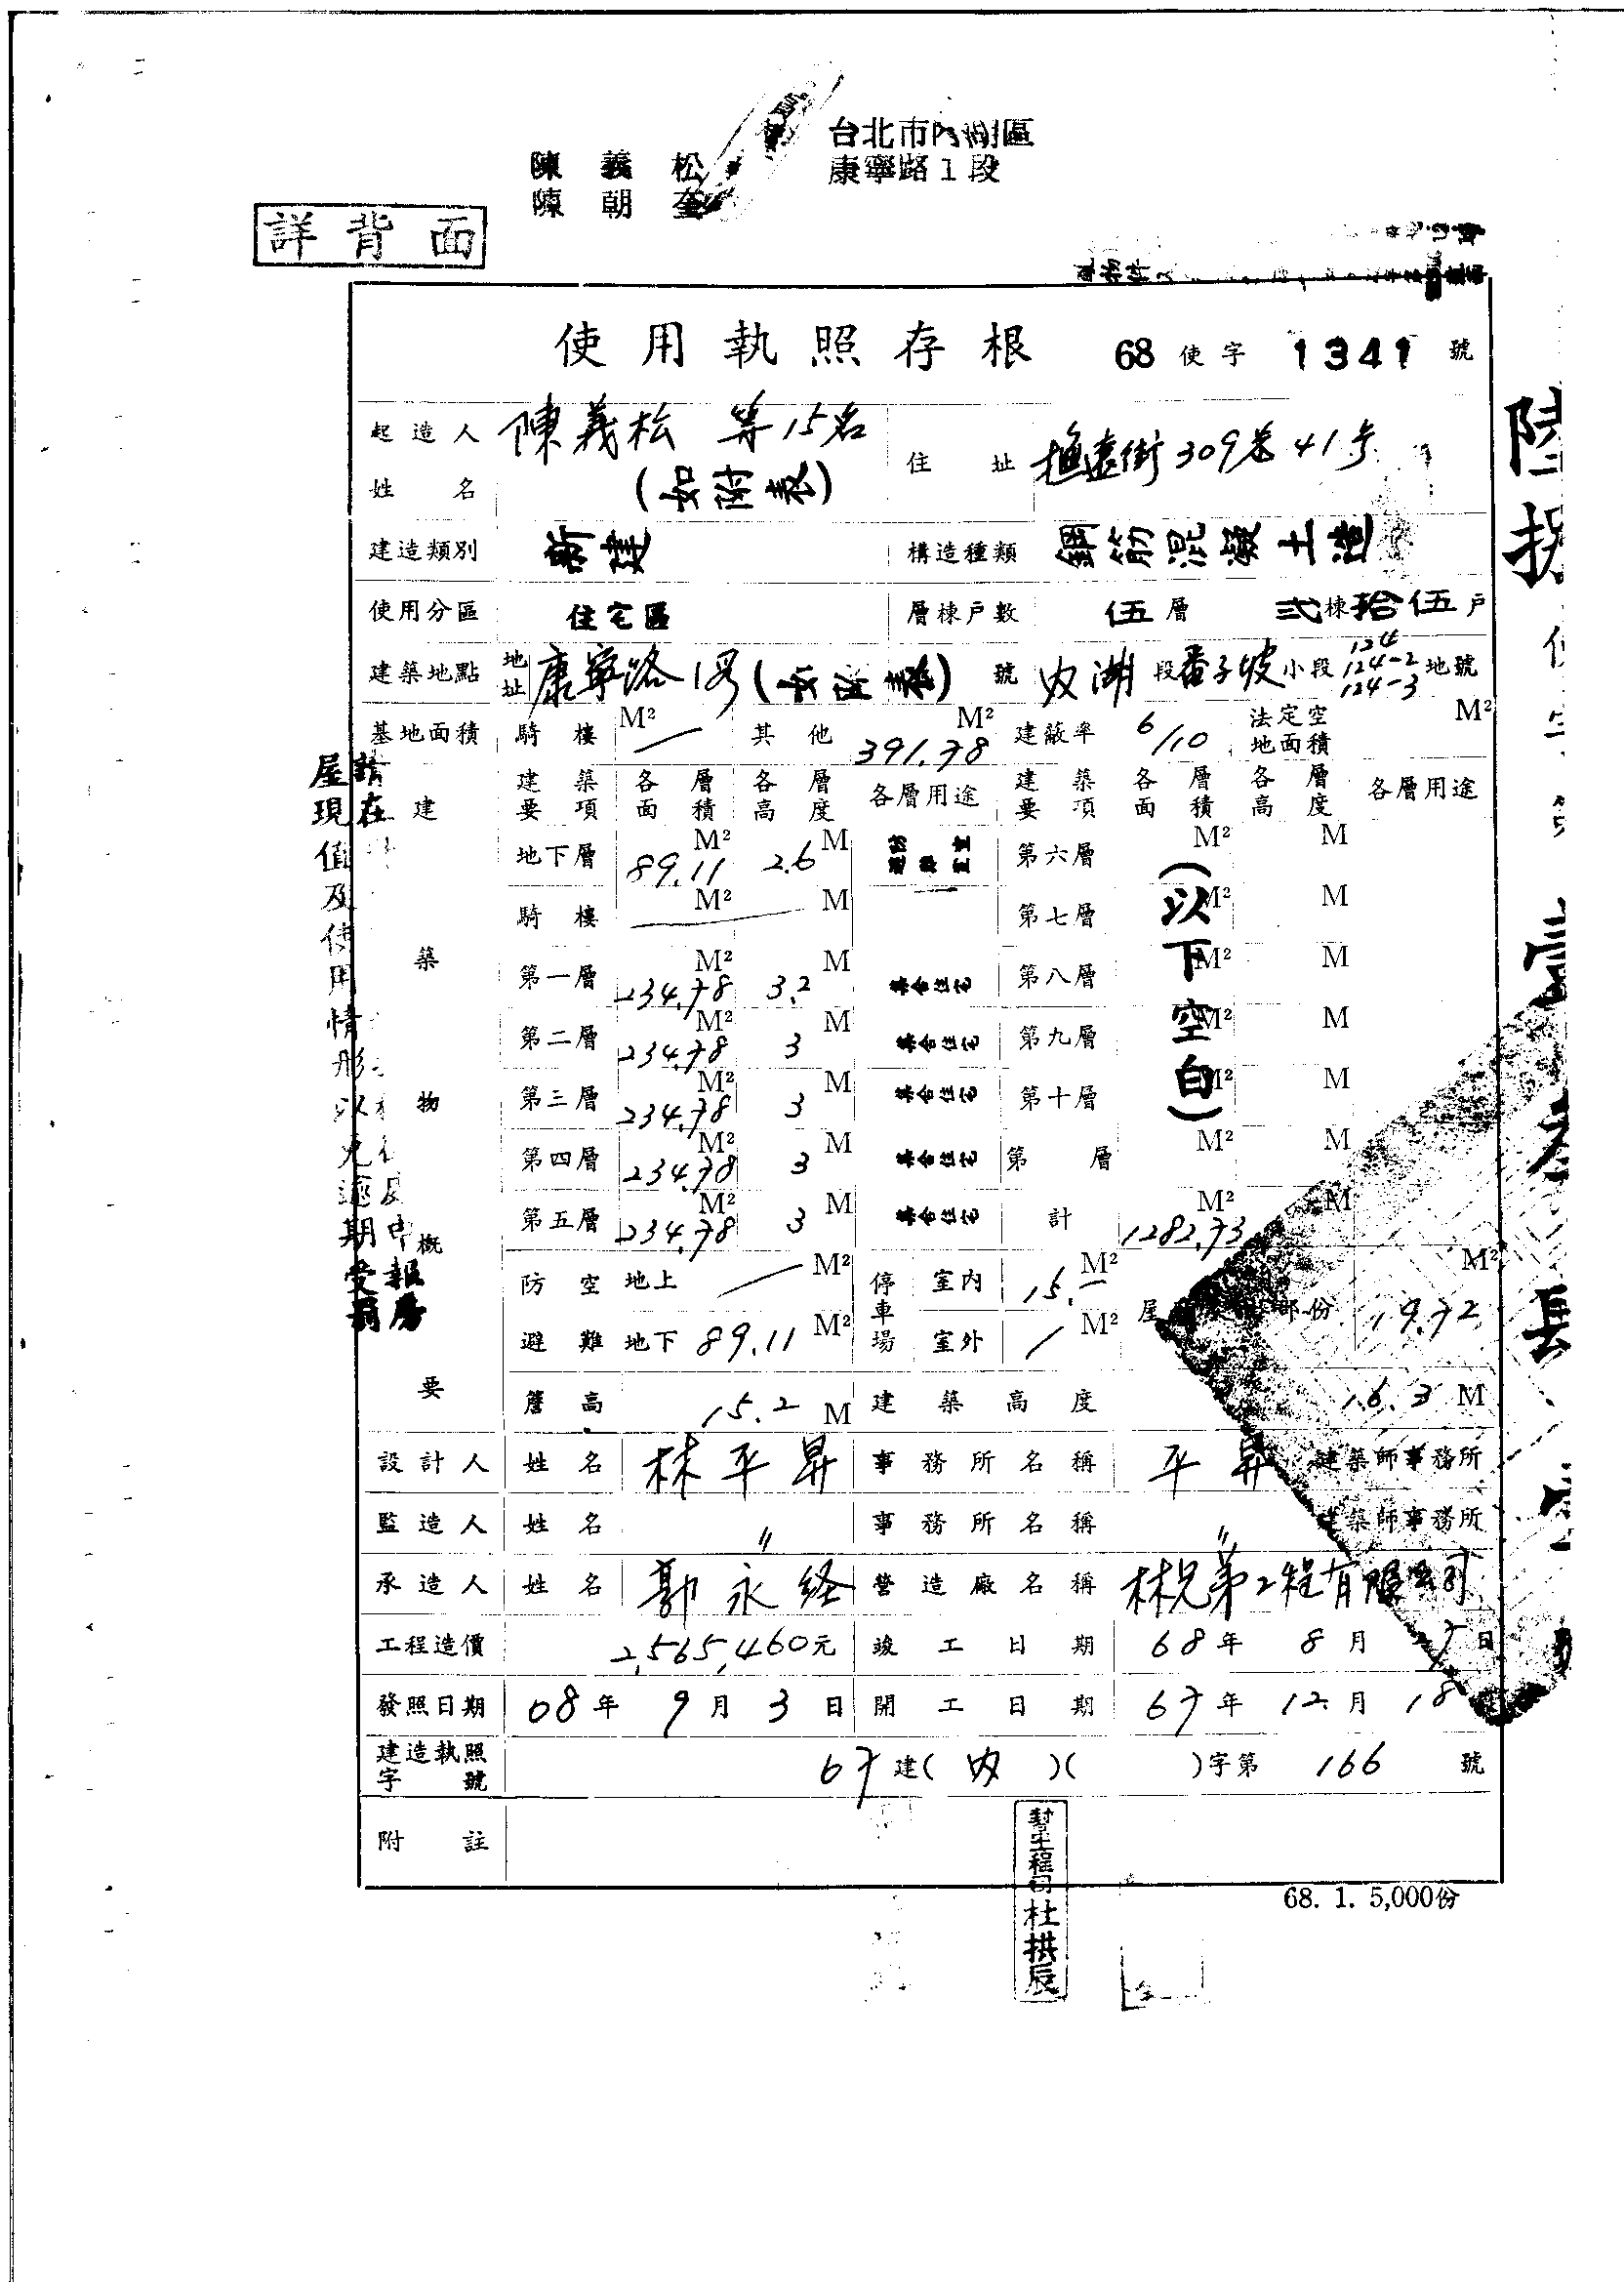 台北市內湖區
康寧路1段
陳義松
陳朝
詳背面
使用執照存根 68使字1341號
起造人姓名 陳義松 等15名 (如附表) 住址 撫遠街309巷41号
建造類別 新建 構造種類 鋼筋混凝土造
使用分區 住宅區 層棟戶數 伍層 弍棟拾伍戶
建築地點 地址 康寧路1段(如附表)號 內湖段番子坡小段 124 124-2 124-3 地號
基地面積 騎樓 M² — 其他 391.78 M² 建蔽率 6/10 法定空地面積 M²
建築物概要
建築要項 各層面積 各層高度 各層用途 建築要項 各層面積 各層高度 各層用途
地下層 89.11 M² 2.6 M 第六層 M² M
騎樓 M² M — 第七層 M² M
第一層 234.78 M² 3.2 M 集合住宅 第八層 M² M
第二層 234.78 M² 3 M 集合住宅 第九層 M² M
第三層 234.78 M² 3 M 集合住宅 第十層 M² M
第四層 234.78 M² 3 M 集合住宅 第 層 M² M
第五層 234.78 M² 3 M 集合住宅 計 1282.73 M² M
(以下空白)
防空避難 地上 — M² 停車場 室內 15.— M² 屋 部份 19.72 M²
地下 89.11 M² 室外 / M²
簷高 15.2 M 建築高度 16.3 M
設計人 姓名 林平昇 事務所名稱 平昇 建築師事務所
監造人 姓名 〃 事務所名稱 〃 建築師事務所
承造人 姓名 郭永経 營造廠名稱 林兄弟工程有限公司
工程造價 2,565,460元 竣工日期 68年8月 日
發照日期 08年9月3日 開工日期 67年12月18
建造執照字號 67建(內)( )字第166號
附註
68. 1. 5,000份
幫工程司 杜拱辰
請在
屋現值及使用情形以
免
期申報
受